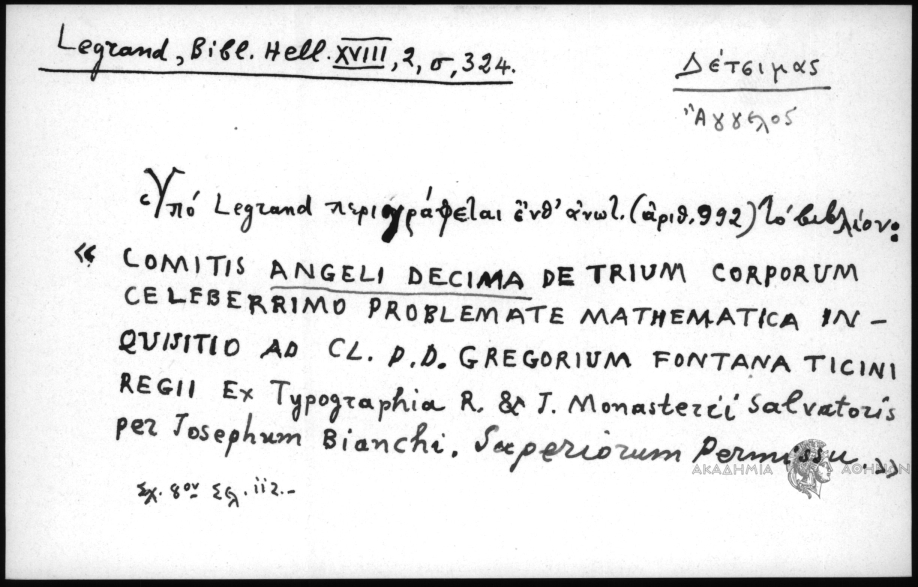 Legrand, Bibl. Hell. XVIII, 2, σ, 324.
Δέτσιμας
Ἄγγελος
Ὑπό Legrand περιγράφεται ἔνθ' ἀνωτ. (ἀριθ. 992) τό βιβλίον:
« COMITIS ANGELI DECIMA DE TRIUM CORPORUM
CELEBERRIMO PROBLEMATE MATHEMATICA IN-
QUISITIO AD CL. D.D. GREGORIUM FONTANA TICINI
REGII Ex Typographia R. & I. Monasterii Salvatoris
per Josephum Bianchi. Superiorum Permissu.»
ΑΚΑΔΗΜΙΑ ΑΘΗΝΩΝ
Σχ. 8ον Σελ. iiz.-